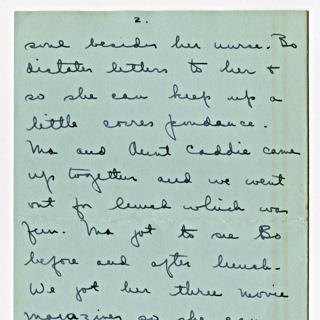 2.
some besides her nurse. Bo
dictates letters to her +
so she can keep up a
little corres pondance.
Ma and Aunt Caddie came
up together and we went
out for lunch which was
fun. Ma got to see Bo
before and after lunch.
We got her three movie
magazines so she can